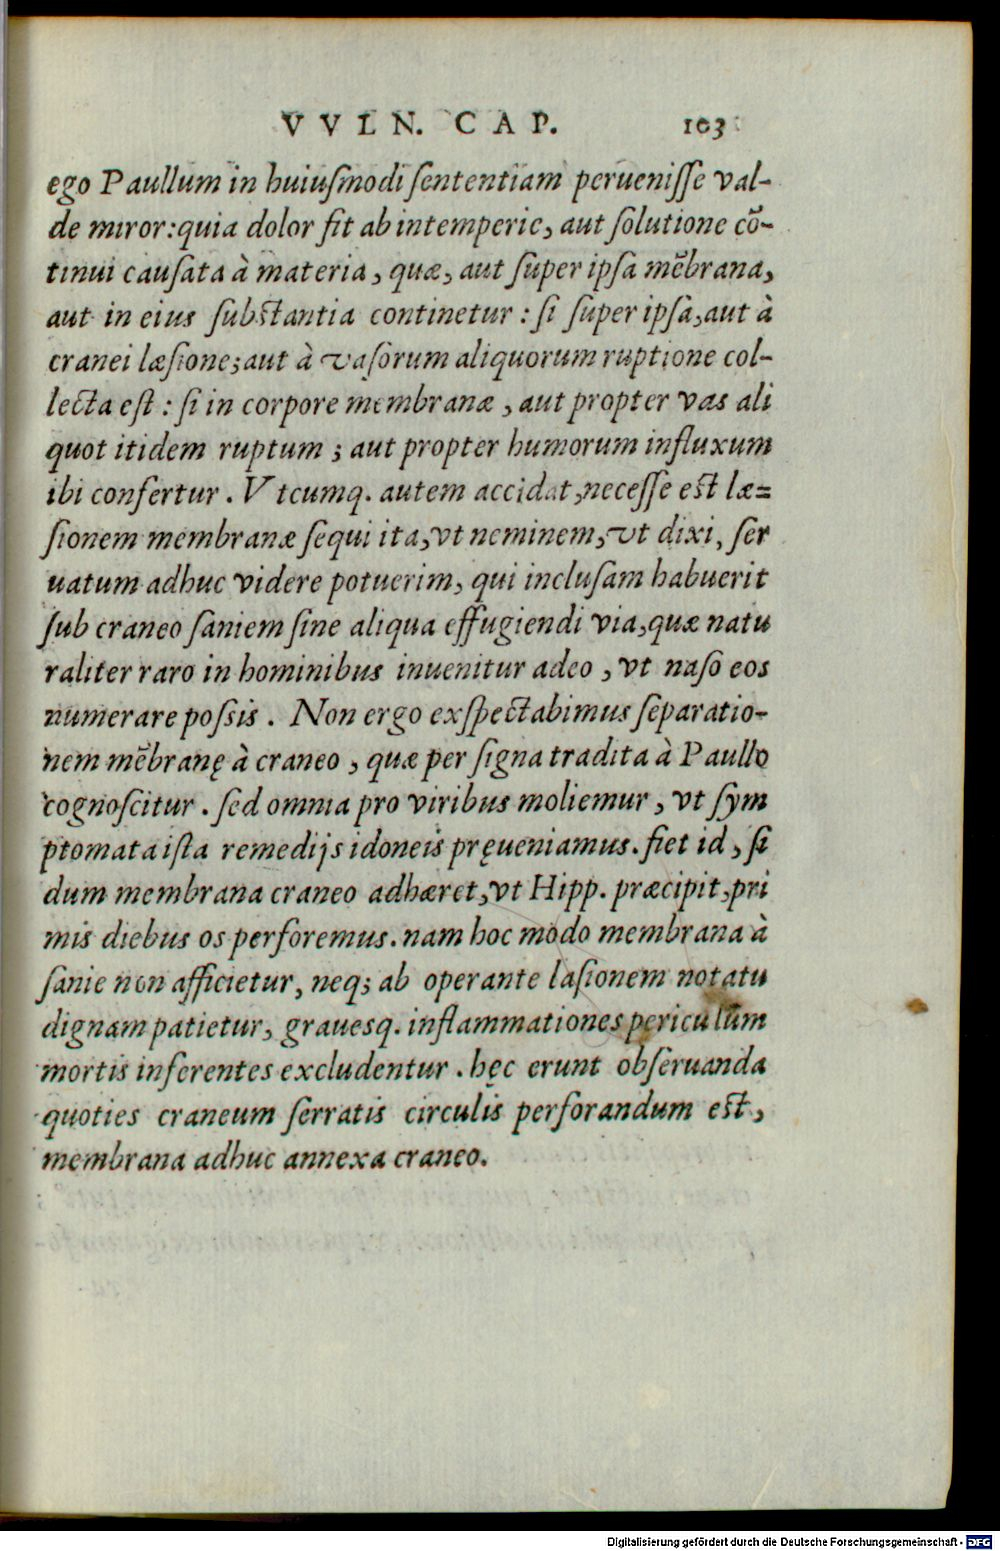 VVLN. CAP. 103
ego Paullum in huiuſmodi ſententiam perueniſſe val-
de miror: quia dolor fit ab intemperie, aut ſolutione cõ-
tinui cauſata à materia, quæ, aut ſuper ipſa mẽbrana,
aut in eius ſubſtantia continetur: ſi ſuper ipſã, aut à
cranei læſione; aut à vaſorum aliquorum ruptione col-
lecta eſt: ſi in corpore membranæ, aut propter vas ali
quot itidem ruptum; aut propter humorum influxum
ibi conſertur. Vtcumq. autem accidat, neceſſe eſt læ=
ſionem membranæ ſequi ita, vt neminem, vt dixi, ſer
uatum adhuc videre potuerim, qui incluſam habuerit
ſub craneo ſaniem ſine aliqua effugiendi via, quæ natu
raliter raro in hominibus inuenitur adeo, vt naſo eos
numerare poſsis. Non ergo exſpectabimus ſeparatio-
nem mẽbranę à craneo, quæ per ſigna tradita à Paullo
cognoſcitur. ſed omnia pro viribus moliemur, vt ſym
ptomata iſta remedijs idoneis pręueniamus. fiet id, ſi
dum membrana craneo adhæret, vt Hipp. præcipit, pri
mis diebus os perforemus. nam hoc modo membrana à
ſanie non afficietur, neq; ab operante laſionem notatu
dignam patietur, graueſq. inflammationes periculum
mortis inferentes excludentur. hęc erunt obſeruanda
quoties craneum ſerratis circulis perforandum eſt,
membrana adhuc annexa craneo.
Digitalisierung gefördert durch die Deutsche Forschungsgemeinschaft - DFG